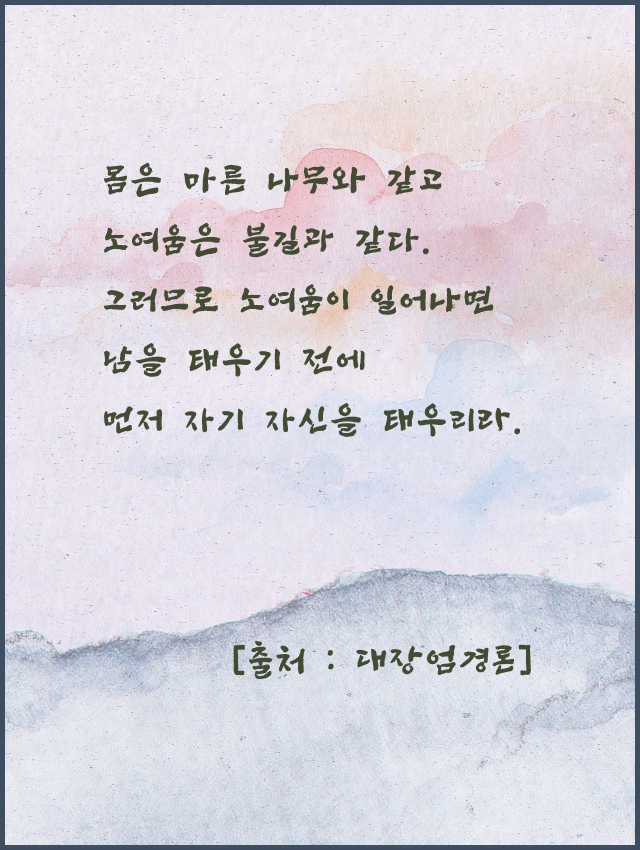 몸은 마른 나무와 같고
노여움은 불길과 같다.
그러므로 노여움이 일어나면
남을 태우기 전에
먼저 자기 자신을 태우리라.
[출처 : 대장엄경론]